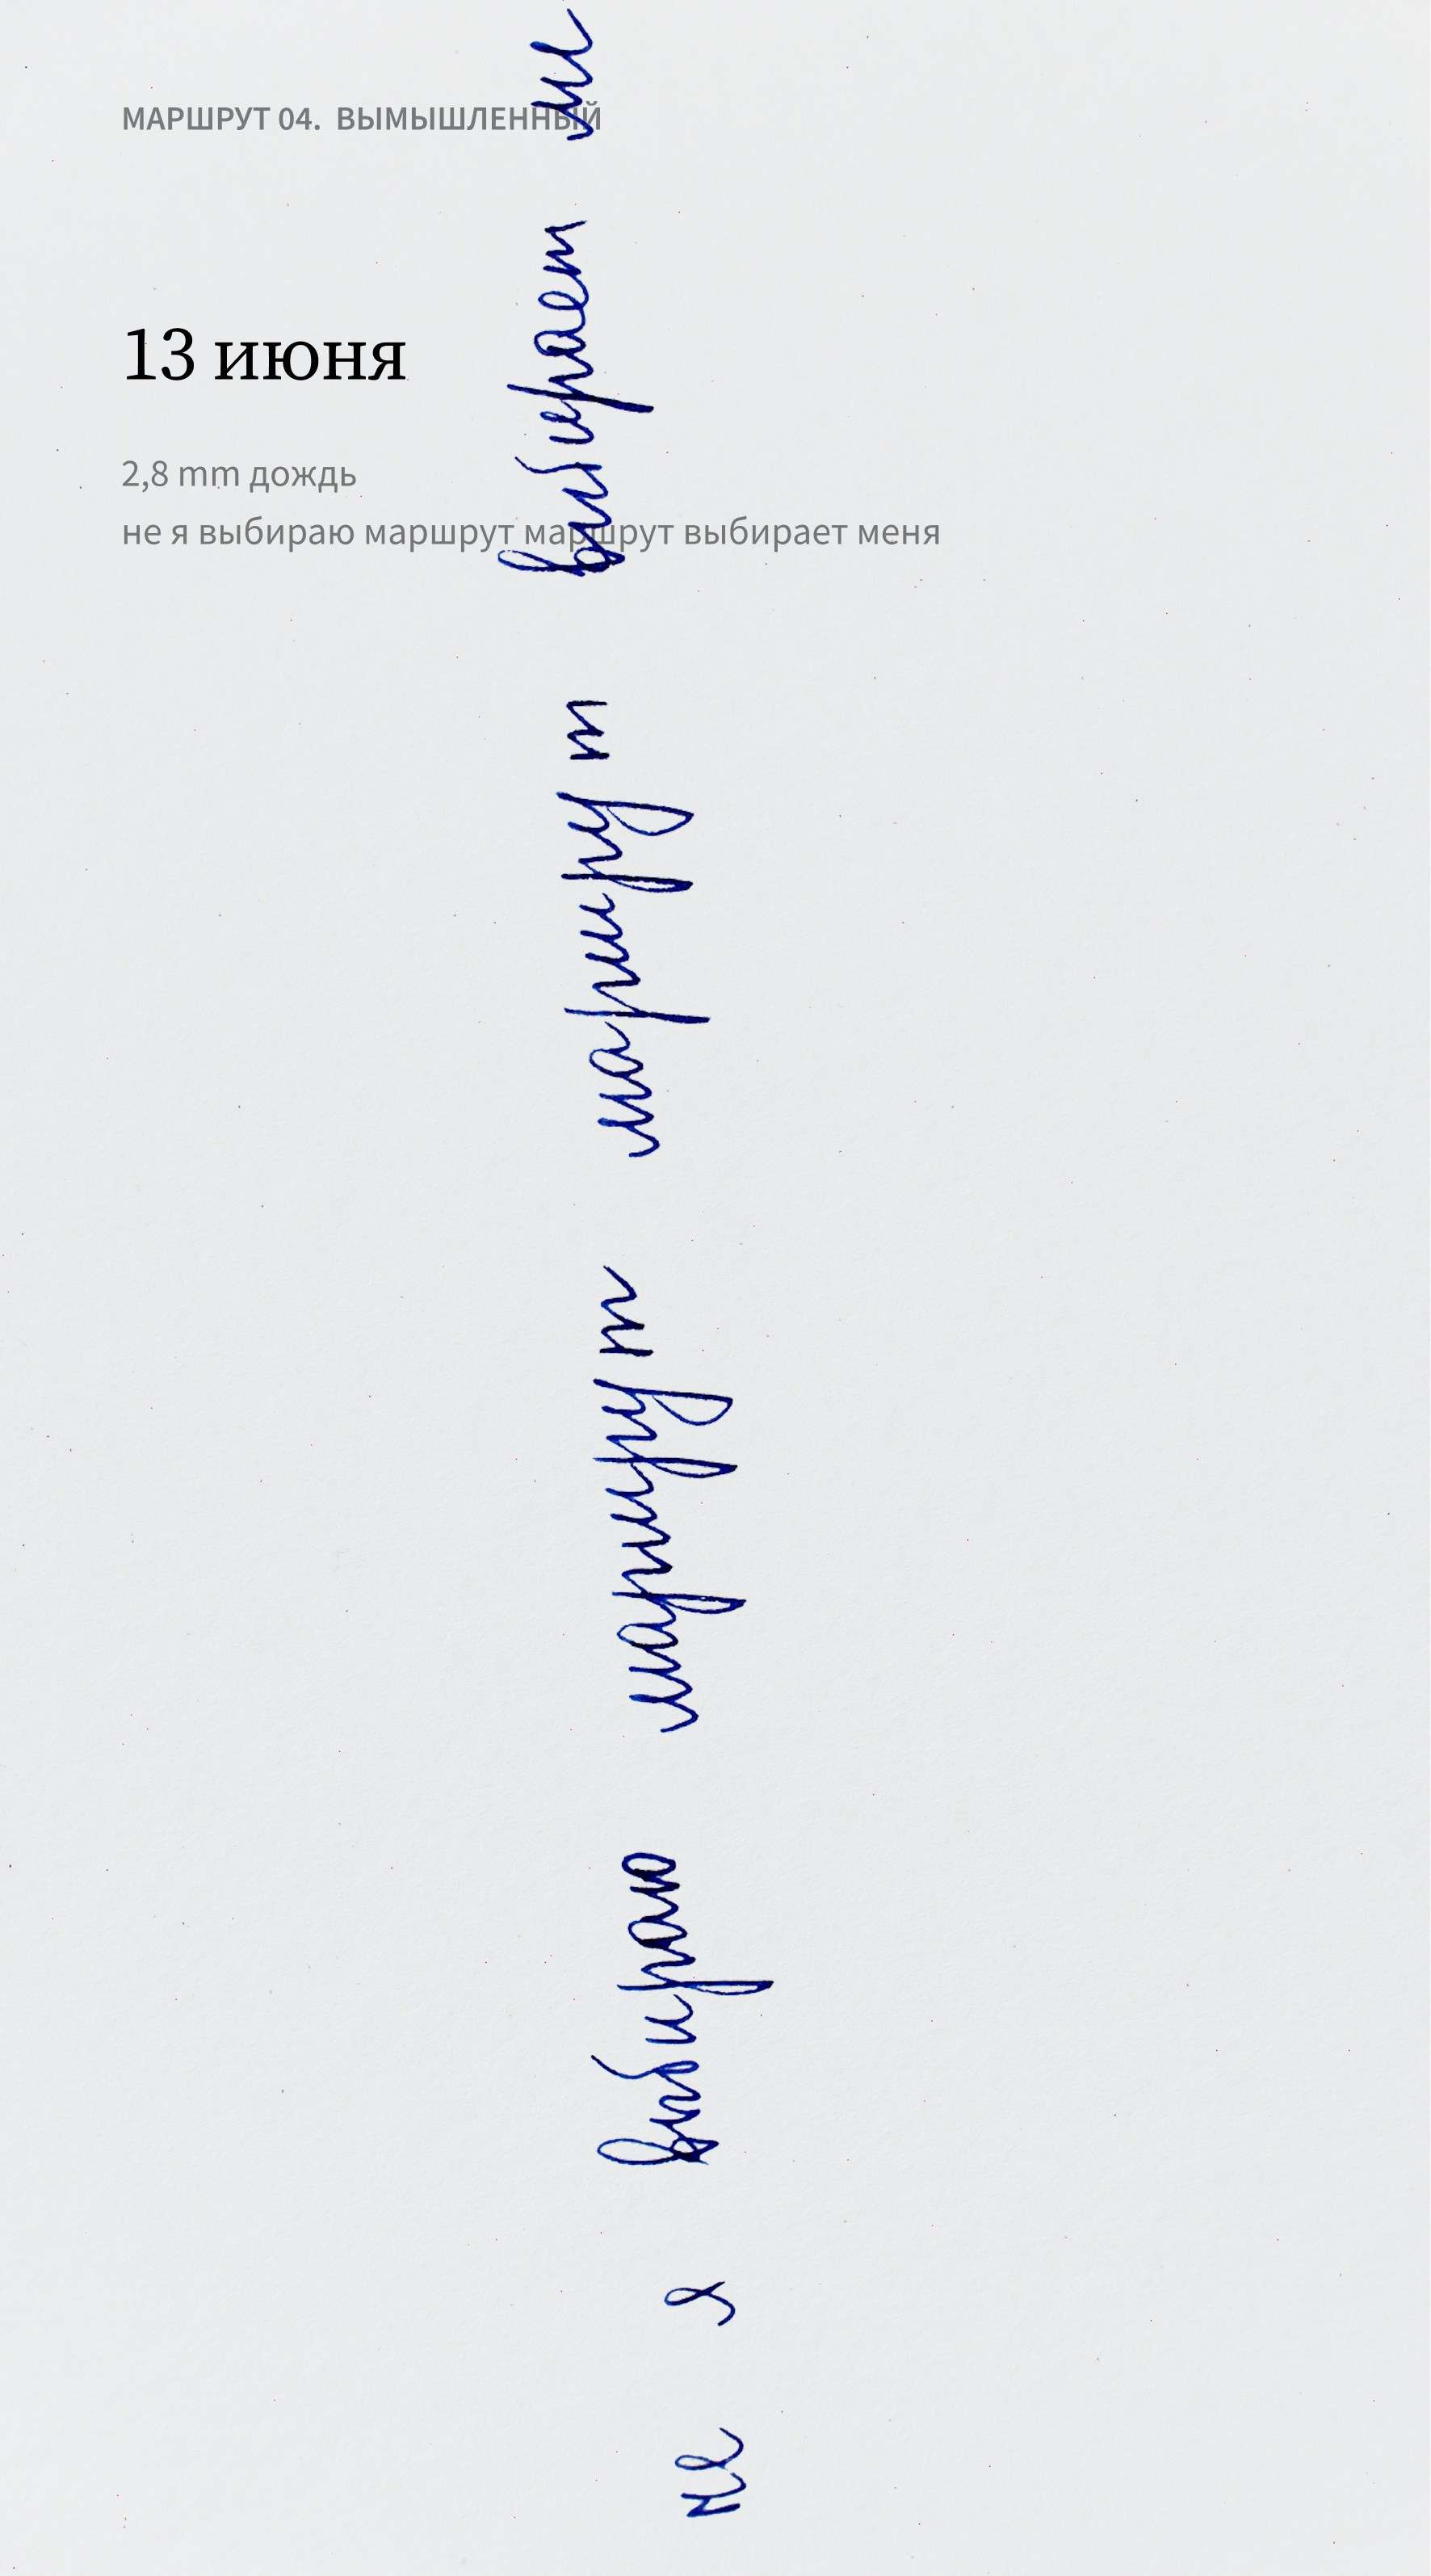 МАРШРУТ 04. ВЫМЫШЛЕННЫЙ
13 июня
2,8 mm дождь
не я выбираю маршрут маршрут выбирает меня
не я выбираю маршрут маршрут выбирает